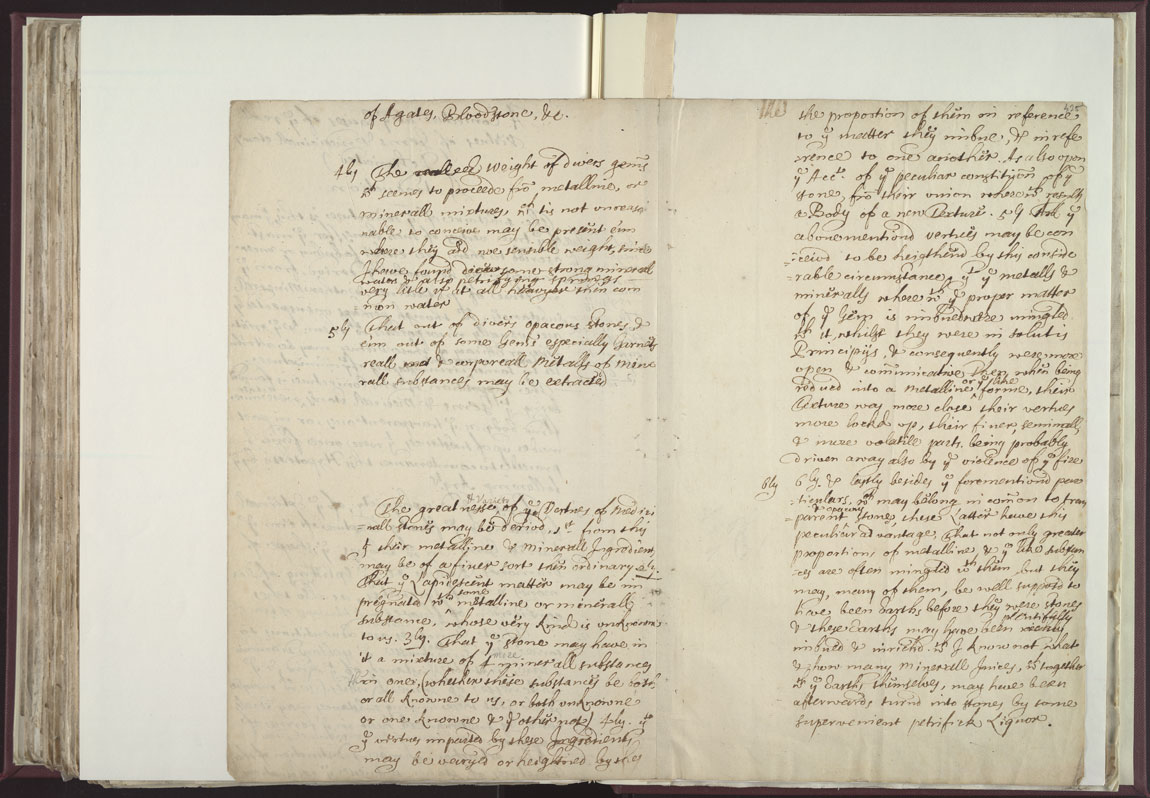 of Agates, Bloodstone, &c.
4ly The weight of divers gems
wch seemes to proceede fro metalline, or
minerall mixtures, wch tis not unreaso
nable to conceive may be present e'en
where they add noe sensible weight, since
I have found divers some strong minerall
waters & also petrifying springs
very litle if at all heavyer then com
mon water
5ly That out of divers opacous stones, &
e'en out of some Gems especially Garnets
reall and & corporeall Metalls or mine
rall substances may be extracted
The greatnesse & variety of ye Vertues of Medici
=nall stones may be deriv'd, 1st from this
yt their metalline & Minerall Ingredients
may be of a finer sort then ordinary. 2ly.
That ye Lapidescent matter may be im
pregnated wth some metalline or minerall
substance, whose very kind is unknowne
to us. 3ly. That ye stone may have in
it a mixture of minerall substances
in one, (whether these substances be both
or all knowne to us, or both unknowne
or one knowne & ye other not) 4ly. yt
ye vertues imparted by these Ingredients
may be varyed or heightned by
425
the
the proportion of them in reference
to ye matter they imbue, & in refe
=rence to one another. As also upon
ye Acct. of ye peculiar constitution of ye
stone, fro their union where wth results
a Body of a new Texture. 5ly That ye
abovementiond vertues may be con
=ceivd to be heigthend by this conside
=rable circumstance, yt ye metalls &
mineralls where wth ye proper matter
of ye Gem is imbued were mingled
wth it, whilst they were in solutis
Principijs, & consequently were more
open & com̄unicative then, when being
reduc'd into a Metalline or ye like forme, their
Texture was more close their vertues
more lockd up, their finer, seminall,
& more volatile parts being probably
driven away also by ye violence of ye fire
6ly 6ly. & lastly besides ye forementiond par
=ticulars, wch may belong in com̄on to trans
=parent & opacous stones, these Latter have this
peculiar advantage, that not only greater
proportions of metalline, & ye like substan
=ces are often mingled wth them, but they
may, many of them, be well suppos'd to
have been Earths before they were stones
& these Earths may have been plentifully
imbued & inrich'd wth I know not what
& how many Minerall Juices, wch together
wth ye Earths themselves, may have been
afterwards turn'd into stones by some
supervenient petrifick Liquor.